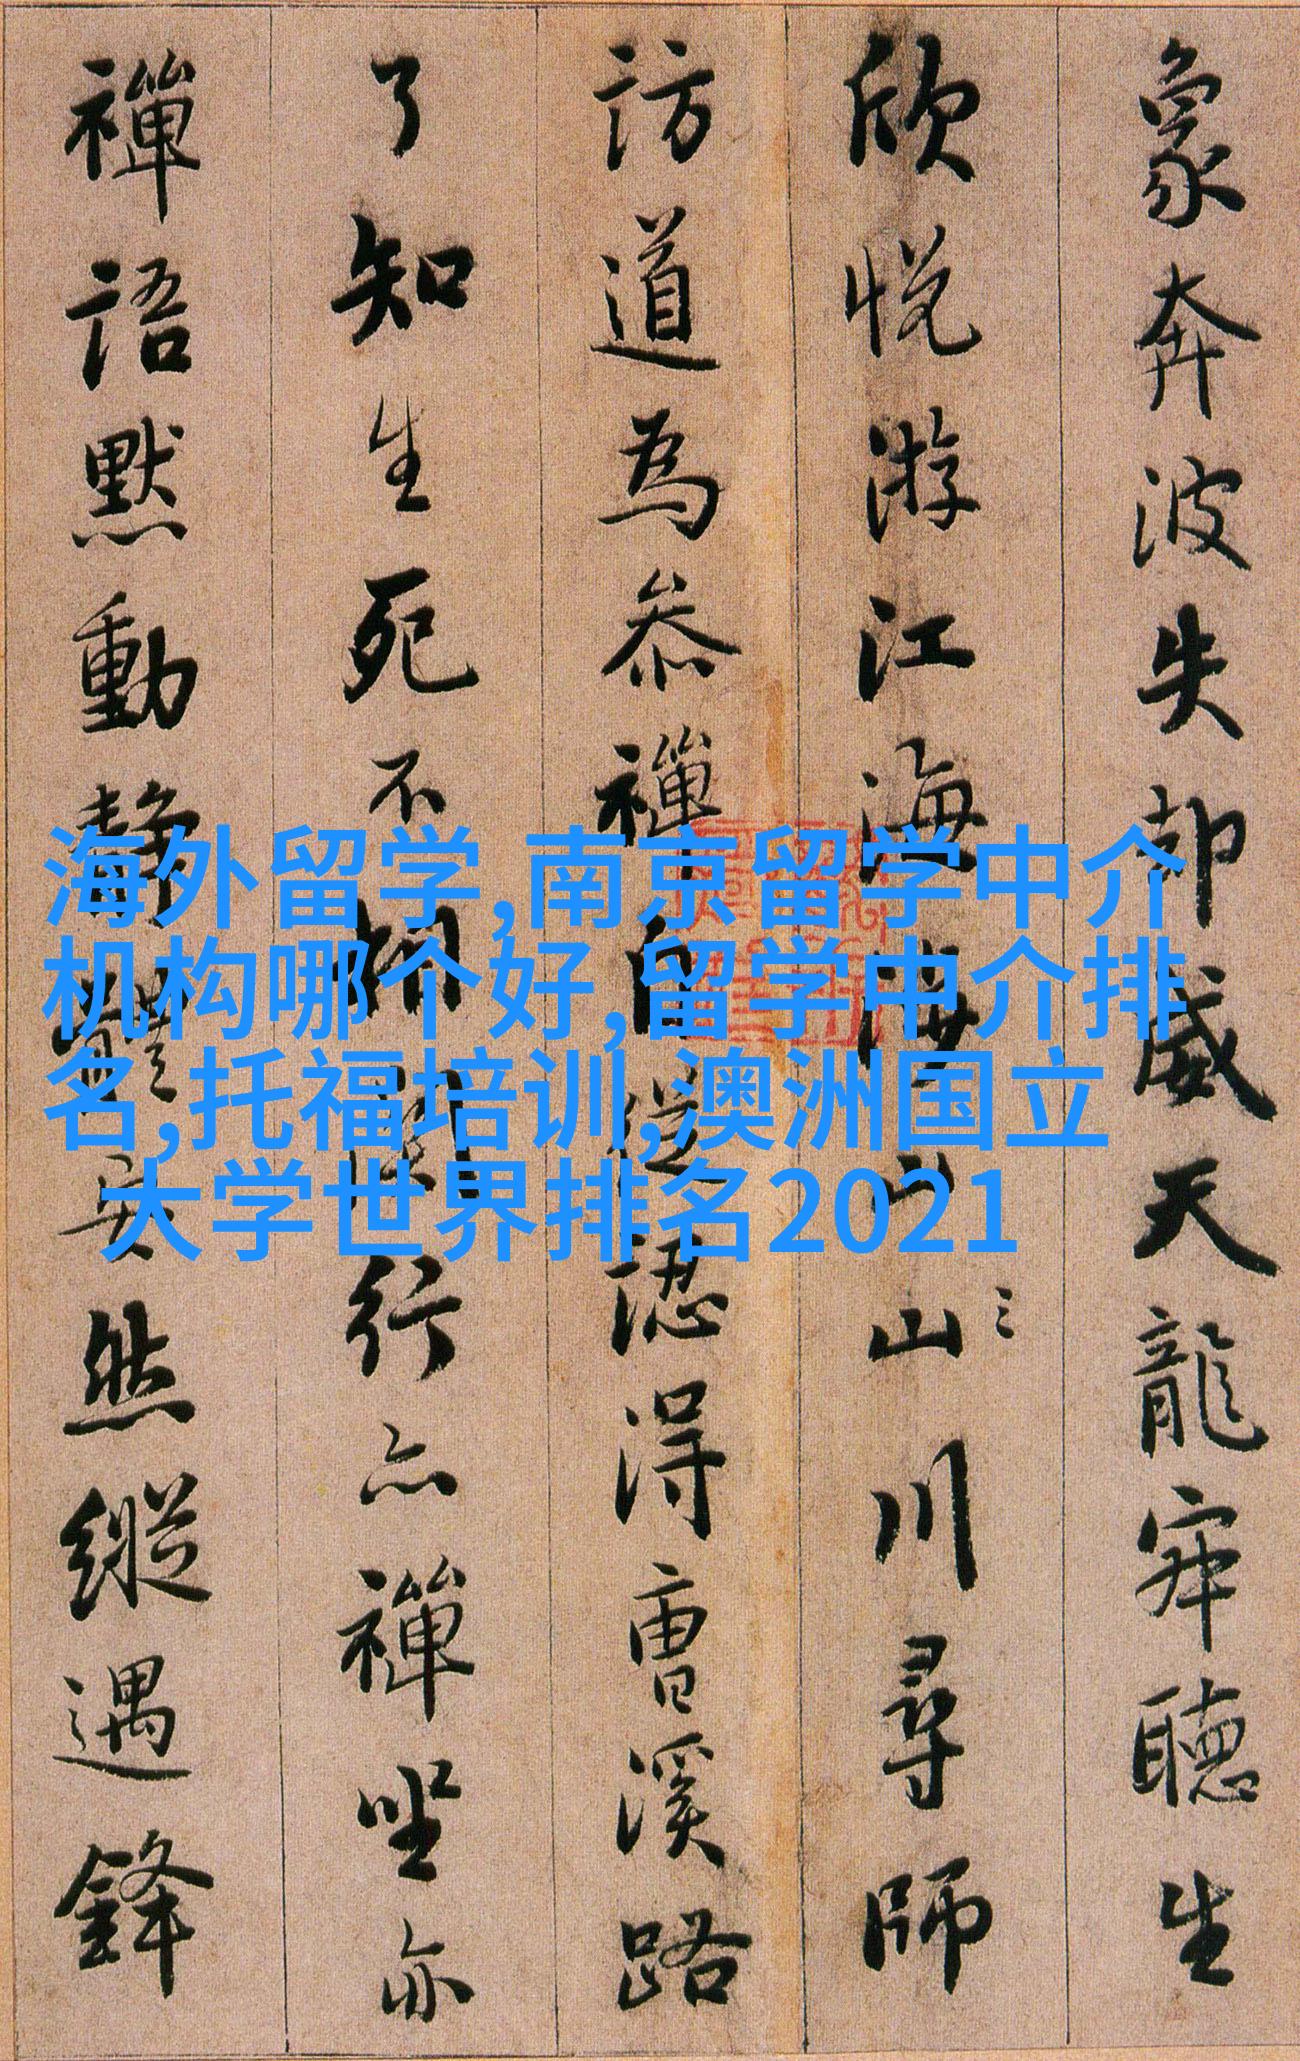 象奔波失却威天龍寂聽生
欣悦游江海涉山山川尋師
訪道為叅禪自從認得曹溪路
了知生死不相關行亦禪坐亦
禪語默動靜體安然縱遇鋒
海外留学,南京留学中介
机构哪个好,留学中介排
名,托福培训,澳洲国立
大学世界排名2021